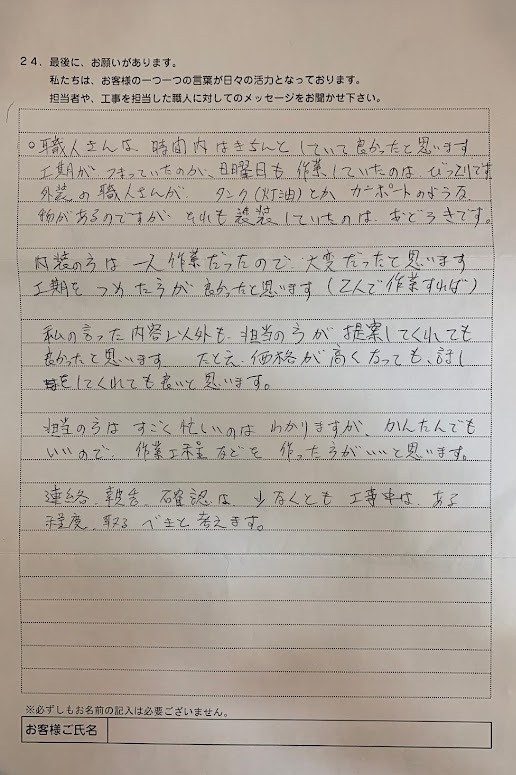 24. 最後に、お願いがあります。
私たちは、お客様の一つ一つの言葉が日々の活力となっております。
担当者や、工事を担当した職人に対してのメッセージをお聞かせ下さい。
○職人さんは、時間内はきちんとしていて良かったと思います
工期がつまっていたのか、日曜日も作業していたのは、びっくりです
外装の職人さんが タンク(灯油)とか カーポートのような
物があるのですが それも塗装していたのは、おどろきです。
内装の方は一人作業だったので、大変だったと思います
工期をつめた方が良かったと思います(2人で作業すれば)
私の言った内容以外も、担当の方が提案してくれても
良かったと思います たとえ価格が高くなっても、話し
をしてくれても良いと思います。
担当の方はすごく忙しいのはわかりますが、かんたんでも
いいので、作業工程などを作ったほうがいいと思います。
連絡、報告、確認は、少なくとも工事中は、ある
程度、取るべきと考えます。
※必ずしもお名前の記入は必要ございません。
お客様ご氏名